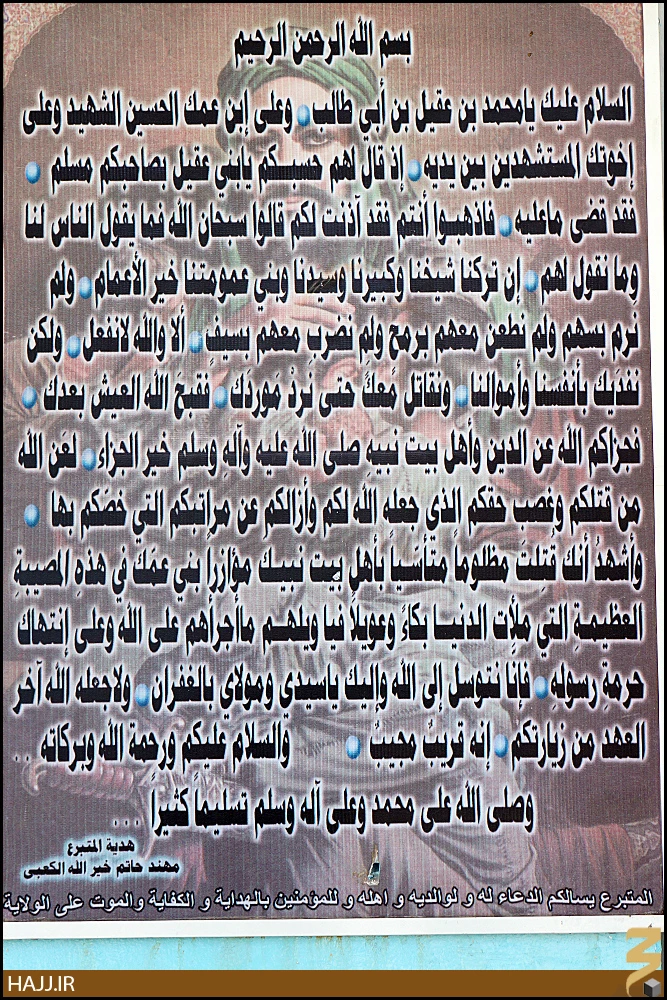 بسم الله الرحمن الرحيم
السلام عليك يامحمد بن عقيل بن أبي طالب وعلى إبن عمك الحسين الشهيد وعلى
إخوتك المستشهدين بين يديه إذ قال لهم حسبكم يابني عقيل بصاحبكم مسلم
فقد قضى ماعليه فاذهبوا أنتم فقد آذنت لكم قالوا سبحان الله فما يقول الناس لنا
وما نقول لهم إن تركنا شيخنا وكبيرنا وسيدنا وبني عمومتنا خير الأعمام ولم
نرم بسهم ولم نطعن معهم برمح ولم نضرب معهم بسيف ألا والله لانفعل ولكن
نفديك بأنفسنا وأموالنا ونقاتل معك حتى نرد موردك فقبح الله العيش بعدك
فجزاكم الله عن الدين وأهل بيت نبيه صلى الله عليه وآله وسلم خير الجزاء لعن الله
من قتلكم وغصب حقكم الذي جعله الله لكم وأزالكم عن مراتبكم التي خصكم بها
وأشهد أنك قتلت مظلوماً متأسياً بأهل بيت نبيك مؤازراً بني عمك في هذه المصيبة
العظيمة التي ملأت الدنيا بكاءً وعويلاً فيا ويلهم ماأجرأهم على الله وعلى إنتهاك
حرمة رسوله فإنا نتوسل إلى الله وإليك ياسيدي ومولاي بالغفران ولاجعله الله آخر
العهد من زيارتكم إنه قريب مجيب والسلام عليكم ورحمة الله وبركاته ...
وصلى الله على محمد وعلى آله وسلم تسليماً كثيراً ...
هدية المتبرع
مهند حاتم خير الله الكعبي
المتبرع يسالكم الدعاء له و لوالديه و اهله و للمؤمنين بالهداية و الكفاية والموت على الولاية
HAJJ.IR